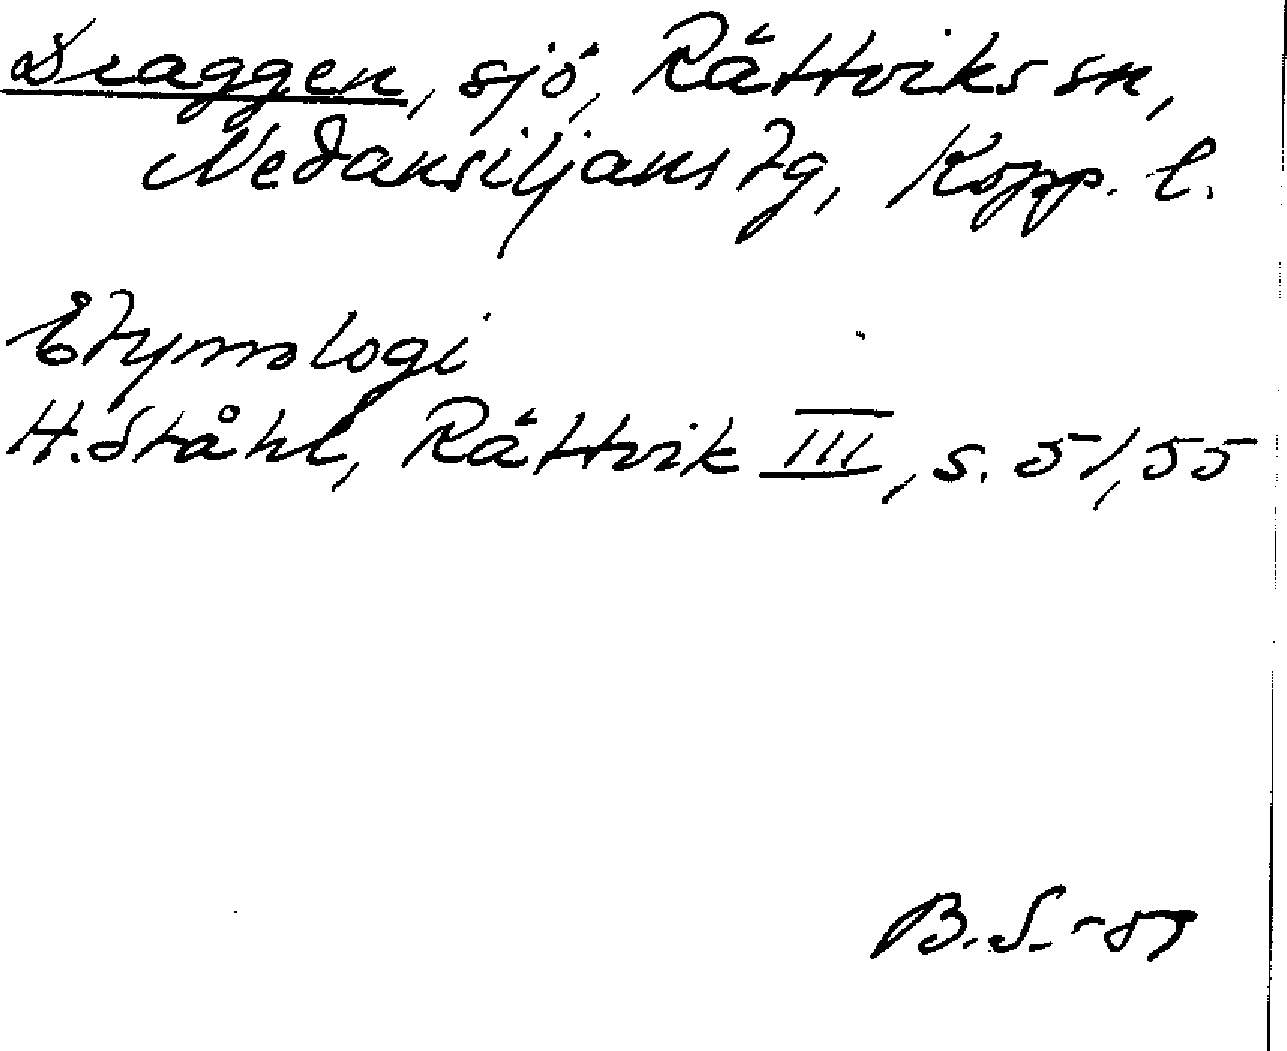 Draggen, sjö, Rättviks sn,
Nedansiljans tg, Kopp. l.
Etymologi
H. Ståhl, Rättvik III, s. 51, 55
B.S.